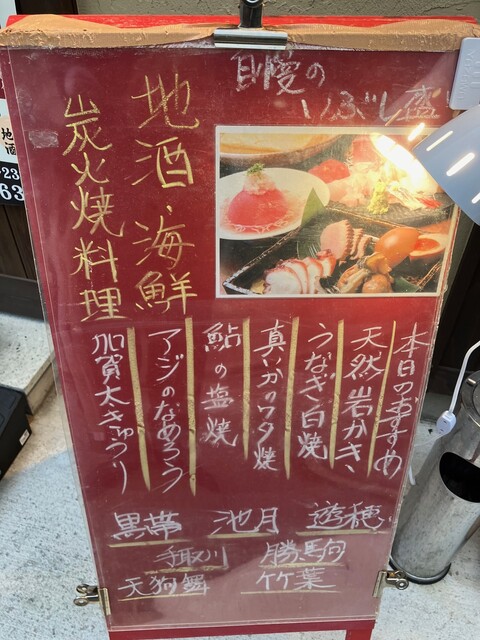 自慢の
いぶし盛
地酒・海鮮
炭火焼料理
本日のおすすめ
天然岩がき
うなぎ白焼
真いかのワタ焼
鮎の塩焼
アジのなめろう
加賀太きゅうり
黒帯 池月 遊穂
手取川 勝駒
天狗舞 竹葉
地酒
23
63